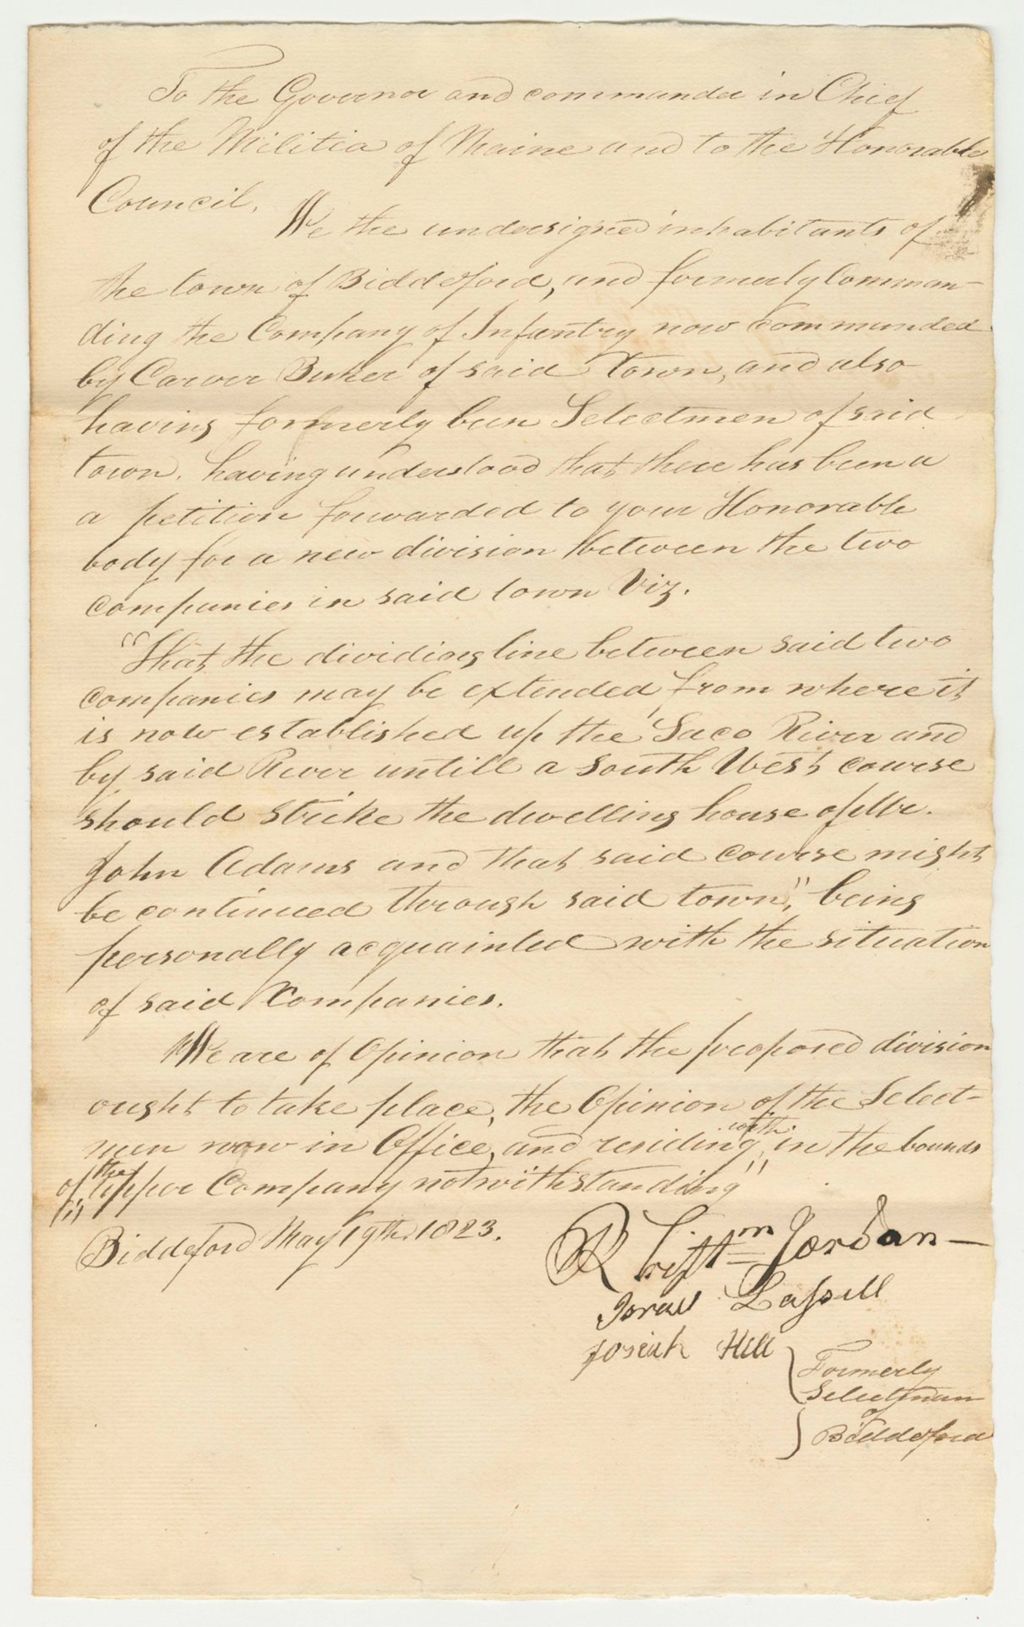 To the Governor and commander in Chief
of the Militia of Maine and to the Honorable
Council.
We the undersigned inhabitants of
the town of Biddeford, and formerly Comman-
ding the Company of Infantry now commanded
by Carver Buker of said Town, and also
having formerly been Selectmen of said
town. having understood that there has been a
a petition forwarded to your Honorable
body for a new division between the two
companies in said town Viz.
"That the dividing line between said two
companies may be extended from where it
is now established up the Saco River and
by said River untill a South West course
should strike the dwelling house of Mr.
John Adams and that said course might
be continued through said town," being
personally acquainted with the situation
of said Companies.
We are of Opinion that the proposed division
ought to take place, the Opinion of the Select-
men now in Office, and residing with in the bounds
of the upper Company notwithstanding"
Biddeford May 19th 1823.
Jordan
Israel Lassell
Josiah Hill
Formerly
Selectman
of
Biddeford